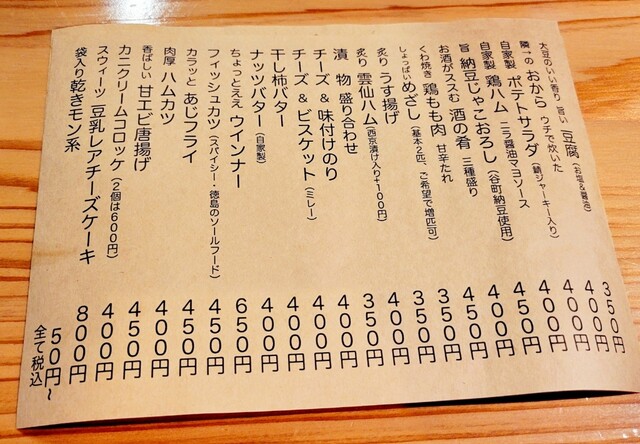 大豆のいい香り 旨い 豆腐（お塩&醤油） ３５０円
隣→の おから ウチで炊いた ４００円
自家製 ポテトサラダ（鯖ジャーキー入り） ４００円
自家製 鶏ハム ニラ醤油マヨソース ４００円
旨 納豆じゃこおろし（谷町納豆使用） ４５０円
お酒がススむ 酒の肴 三種盛り ４００円
くわ焼き 鶏もも肉 甘辛たれ ４５０円
しょっぱい めざし（基本２匹、ご希望で増匹可） ３５０円
炙り うす揚げ ３５０円
炙り 雲仙ハム（西京漬け入り+１００円） ４００円
漬物 盛り合わせ ３５０円
チーズ & 味付けのり ４００円
チーズ & ビスケット（ミレー） ４００円
干し柿バター ４００円
ナッツバター（自家製） ４００円
ちょっとええ ウインナー ６５０円
フィッシュカツ（スパイシー・徳島のソールフード） ４５０円
カラッと あじフライ ４５０円
肉厚 ハムカツ ４００円
香ばしい 甘エビ唐揚げ ４５０円
カニクリームコロッケ（２個は６００円） ４００円
スウィーツ 豆乳レアチーズケーキ ８００円
袋入り乾きモン系 ５０円〜
全て税込